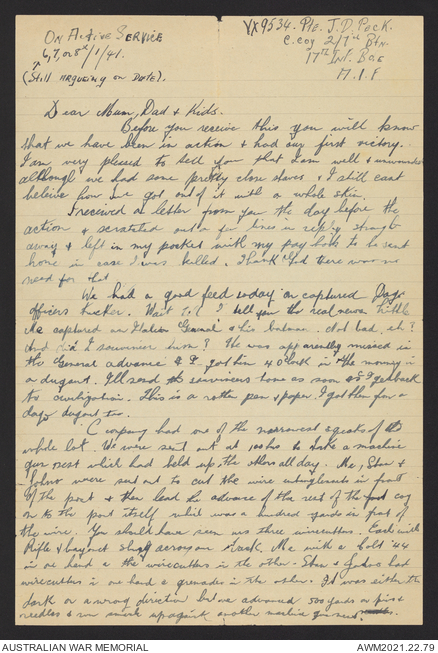 On Active Service
6, 7, or 8th/1/41.
(Still arguing on date).
VX9534. Pte. J. D. Peck.
C. coy 2/7th Btn.
17th Inf. Bde
A.I.F
Dear Mum, Dad & Kids.
Before you receive this you will know
that we have been in action & had our first victory.
I am very pleased to tell you that I am well & unwounded
although we had some pretty close shaves & I still cant
believe how we got out of it with a whole skin.
I received a letter from you the day before the
action & scratched out a few lines in reply straight
away & left in my pocket with my pay book to be sent
home in case I was killed. Thank God there was no
need for that.
We had a good feed today on captured Dago
officers tucker. Wait till I tell you the real news tho'
We captured an Italian General & his batman. Not bad, eh?
And did I souvenir him? He was apparently missed in
the General advance & I got him 4 oclock in the morning in
a dugout. I'll send the souvenirs home as soon as I get back
to civilization. This is a rotten pen & paper I got them from a
dago dugout too.
C company had one of the narrowest squeaks of the
whole lot. We were sent out at to take a machine
gun nest which had held up the others all day. Me, Stan &
Johno were sent out to cut the wire entanglements in front
of the post & then lead the advance of the rest of the coy
on to the post itself which was a hundred yards in front of
the wire. You should have seen us three wirecutters. Each with
Rifle & bayonet slung across our back. Me with a Colt 44
in one hand & the wirecutters in the other. Stan & Johno had
wirecutters in one hand & grenades in the other. It was either the
dark or a wrong direction but we advanced 500 yards on pins &
needles & ran smack up against another machine gun nest
AUSTRALIAN WAR MEMORIAL
AWM2021.22.79